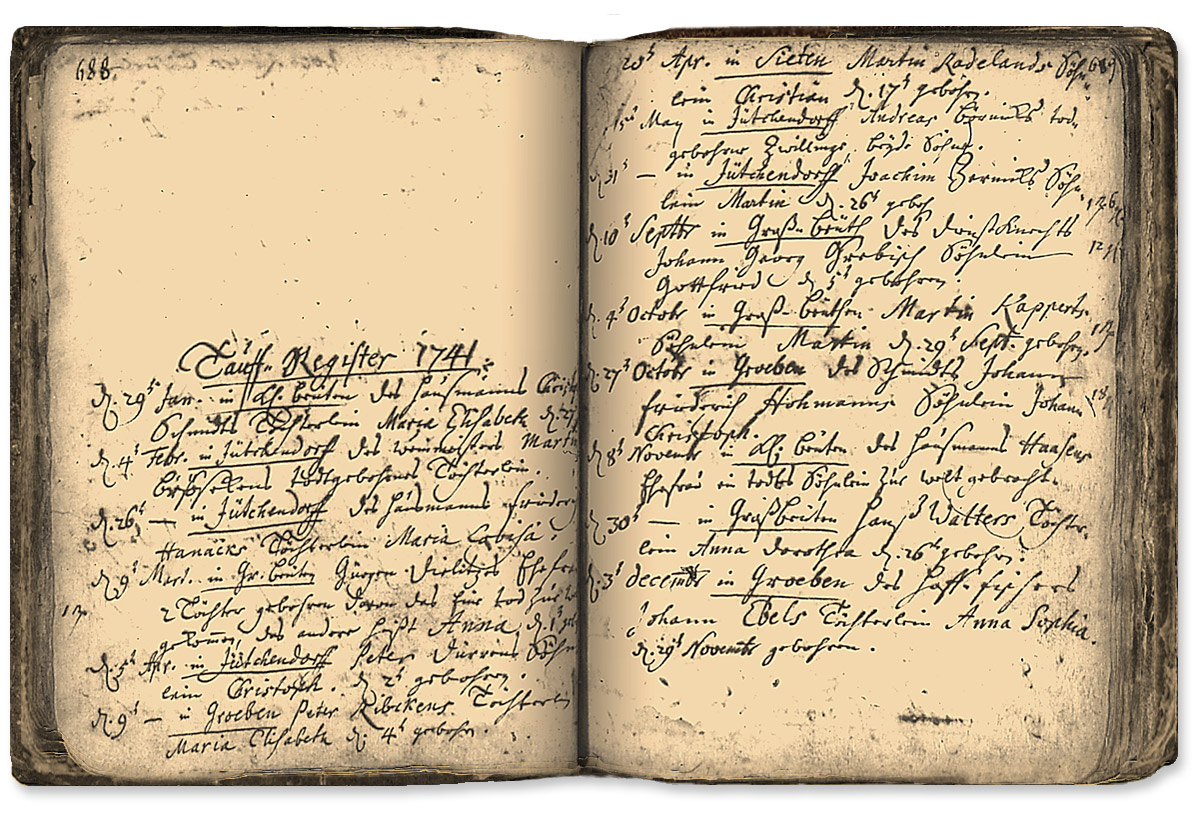 688.
Tauff-Register 1741.
d. 29t Jan. in Kl. beuten des Hausmanns Christ
Schmidts Töchterlein Maria Elisabeth d. 27
d. 4t Febr. in Jütchendorff des Weinmeisters Martin
todtgebohrnes Töchterlein.
d. 26t — in Jütchendorff des Hausmanns Frieder
Hanacks Töchterlein Maria Lovisa.
d. 9t Mart. in Gr. beuten Jürgen Ehefrau
2 Töchter gebohren davon das Eine tod zur
gekommen, das andere heist Anna, d. 1t geb
d. 5t Apr. in Jütchendorff Peter Söhn
lein Christoph. d. 2t gebohren.
d. 9t — in Groeben Peter Ribekens Töchterl
Maria Elisabeth d. 4t gebohren.
689
20t Apr. in Sieten Martin Radelands Söhn
lein Christian d. 17t gebohren.
15t May in Jütchendorff Andreas tod
gebohrne Zwillinge, beyde Söhne.
d. 31t — in Jütchendorff Joachim Söhn
lein Martin d. 26t geboh
d. 10t Septbr in Groß-beuth des dienstknechts
Johann Georg Grebisch Söhnlein
Gottfried d. 5t gebohren.
d. 4t Octobr in Groß-beuthen Martin Kapperts
Söhnlein Martin d. 29t Sept. gebohren.
d. 27t Octobr in Groeben des Schmidts Johann
Friederich Hohmanns Söhnlein Johann
Christoph.
d. 8t Novembr in Kl. beuten des Hausmanns Haasens
Ehefrau ein todtes Söhnlein zur welt gebracht.
d. 30t — in Großbeuten Hanß Watters Töchter
lein Anna Dorothea d. 26t gebohren.
d. 3t decembr in Groeben des Haff-fischers
Johann Ebels Töchterlein Anna Sophia.
d. 29t Novembr gebohren.